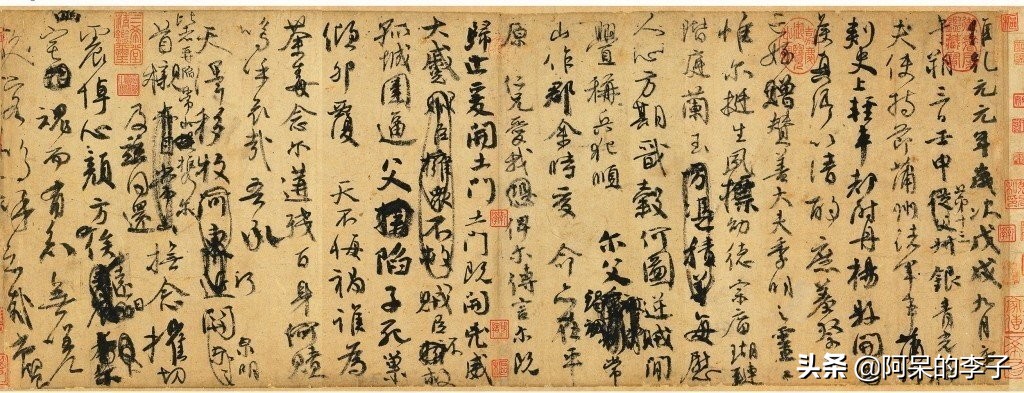 維乾元元年歲次戊戌九月庚
午朔三日壬申第十三從父銀青光
夫使持節蒲州諸軍事蒲州
刺史上輕車都尉丹楊縣開
侯真卿以清酌庶羞祭
亡姪贈贊善大夫季明之靈
惟爾挺生夙標幼德宗廟瑚璉
階庭蘭玉方憑積善每慰
人心方期戩穀何圖逆賊間
釁稱兵犯順爾父竭誠常
山作郡余時受命亦在平
原仁兄愛我俾爾傳言爾既
歸止爰開土門土門既開凶威
大蹙賊臣擁眾不救賊臣不救
孤城圍逼父陷子死巢
傾卵覆天不悔禍誰為
荼毒念爾遘殘百身何贖
嗚呼哀哉吾承
天澤移牧河東近河關泉明
比者再陷常山攜爾
首櫬及茲同還撫念摧切
震悼心顏方俟遠日
宅魂而有知無嗟
久客嗚呼哀哉尚饗
头条 @阿呆的李子